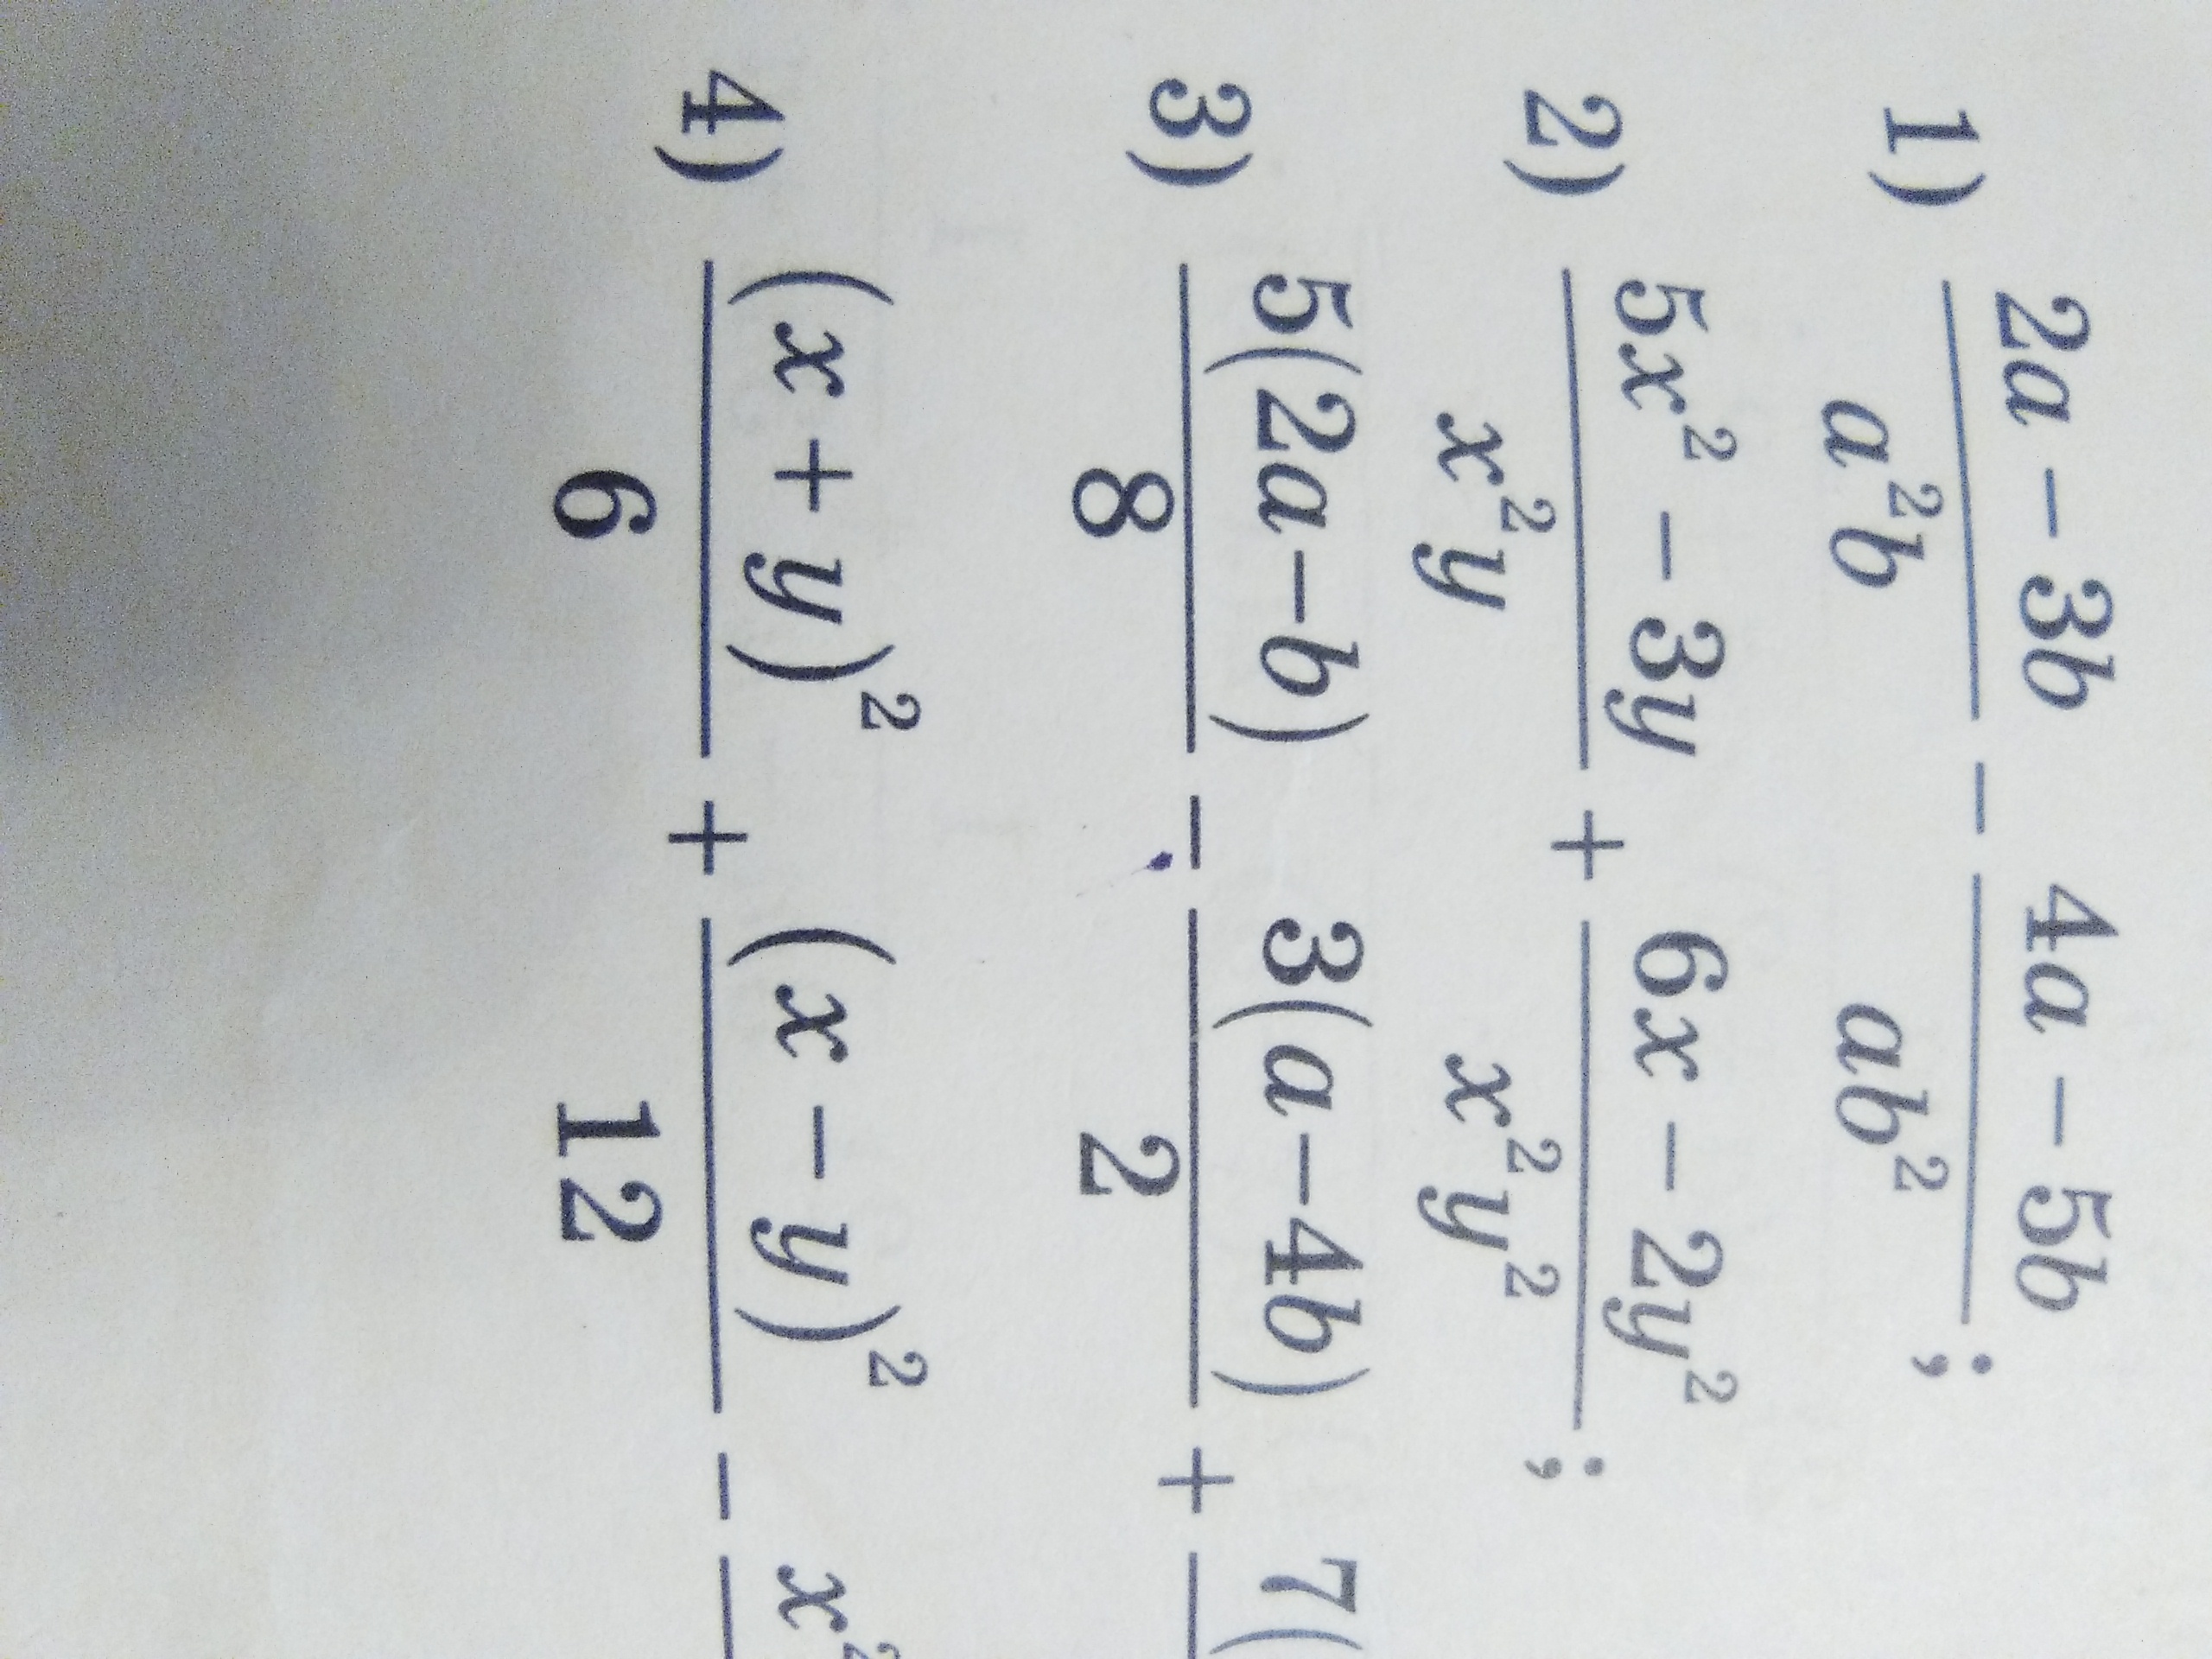 1) \frac{2a - 3b}{a^2b} - \frac{4a - 5b}{ab^2};
2) \frac{5x^2 - 3y}{x^2y} + \frac{6x - 2y^2}{x^2y^2};
3) \frac{5(2a - b)}{8} - \frac{3(a - 4b)}{2} + \frac{7(
4) \frac{(x + y)^2}{6} + \frac{(x - y)^2}{12} - \frac{x^2